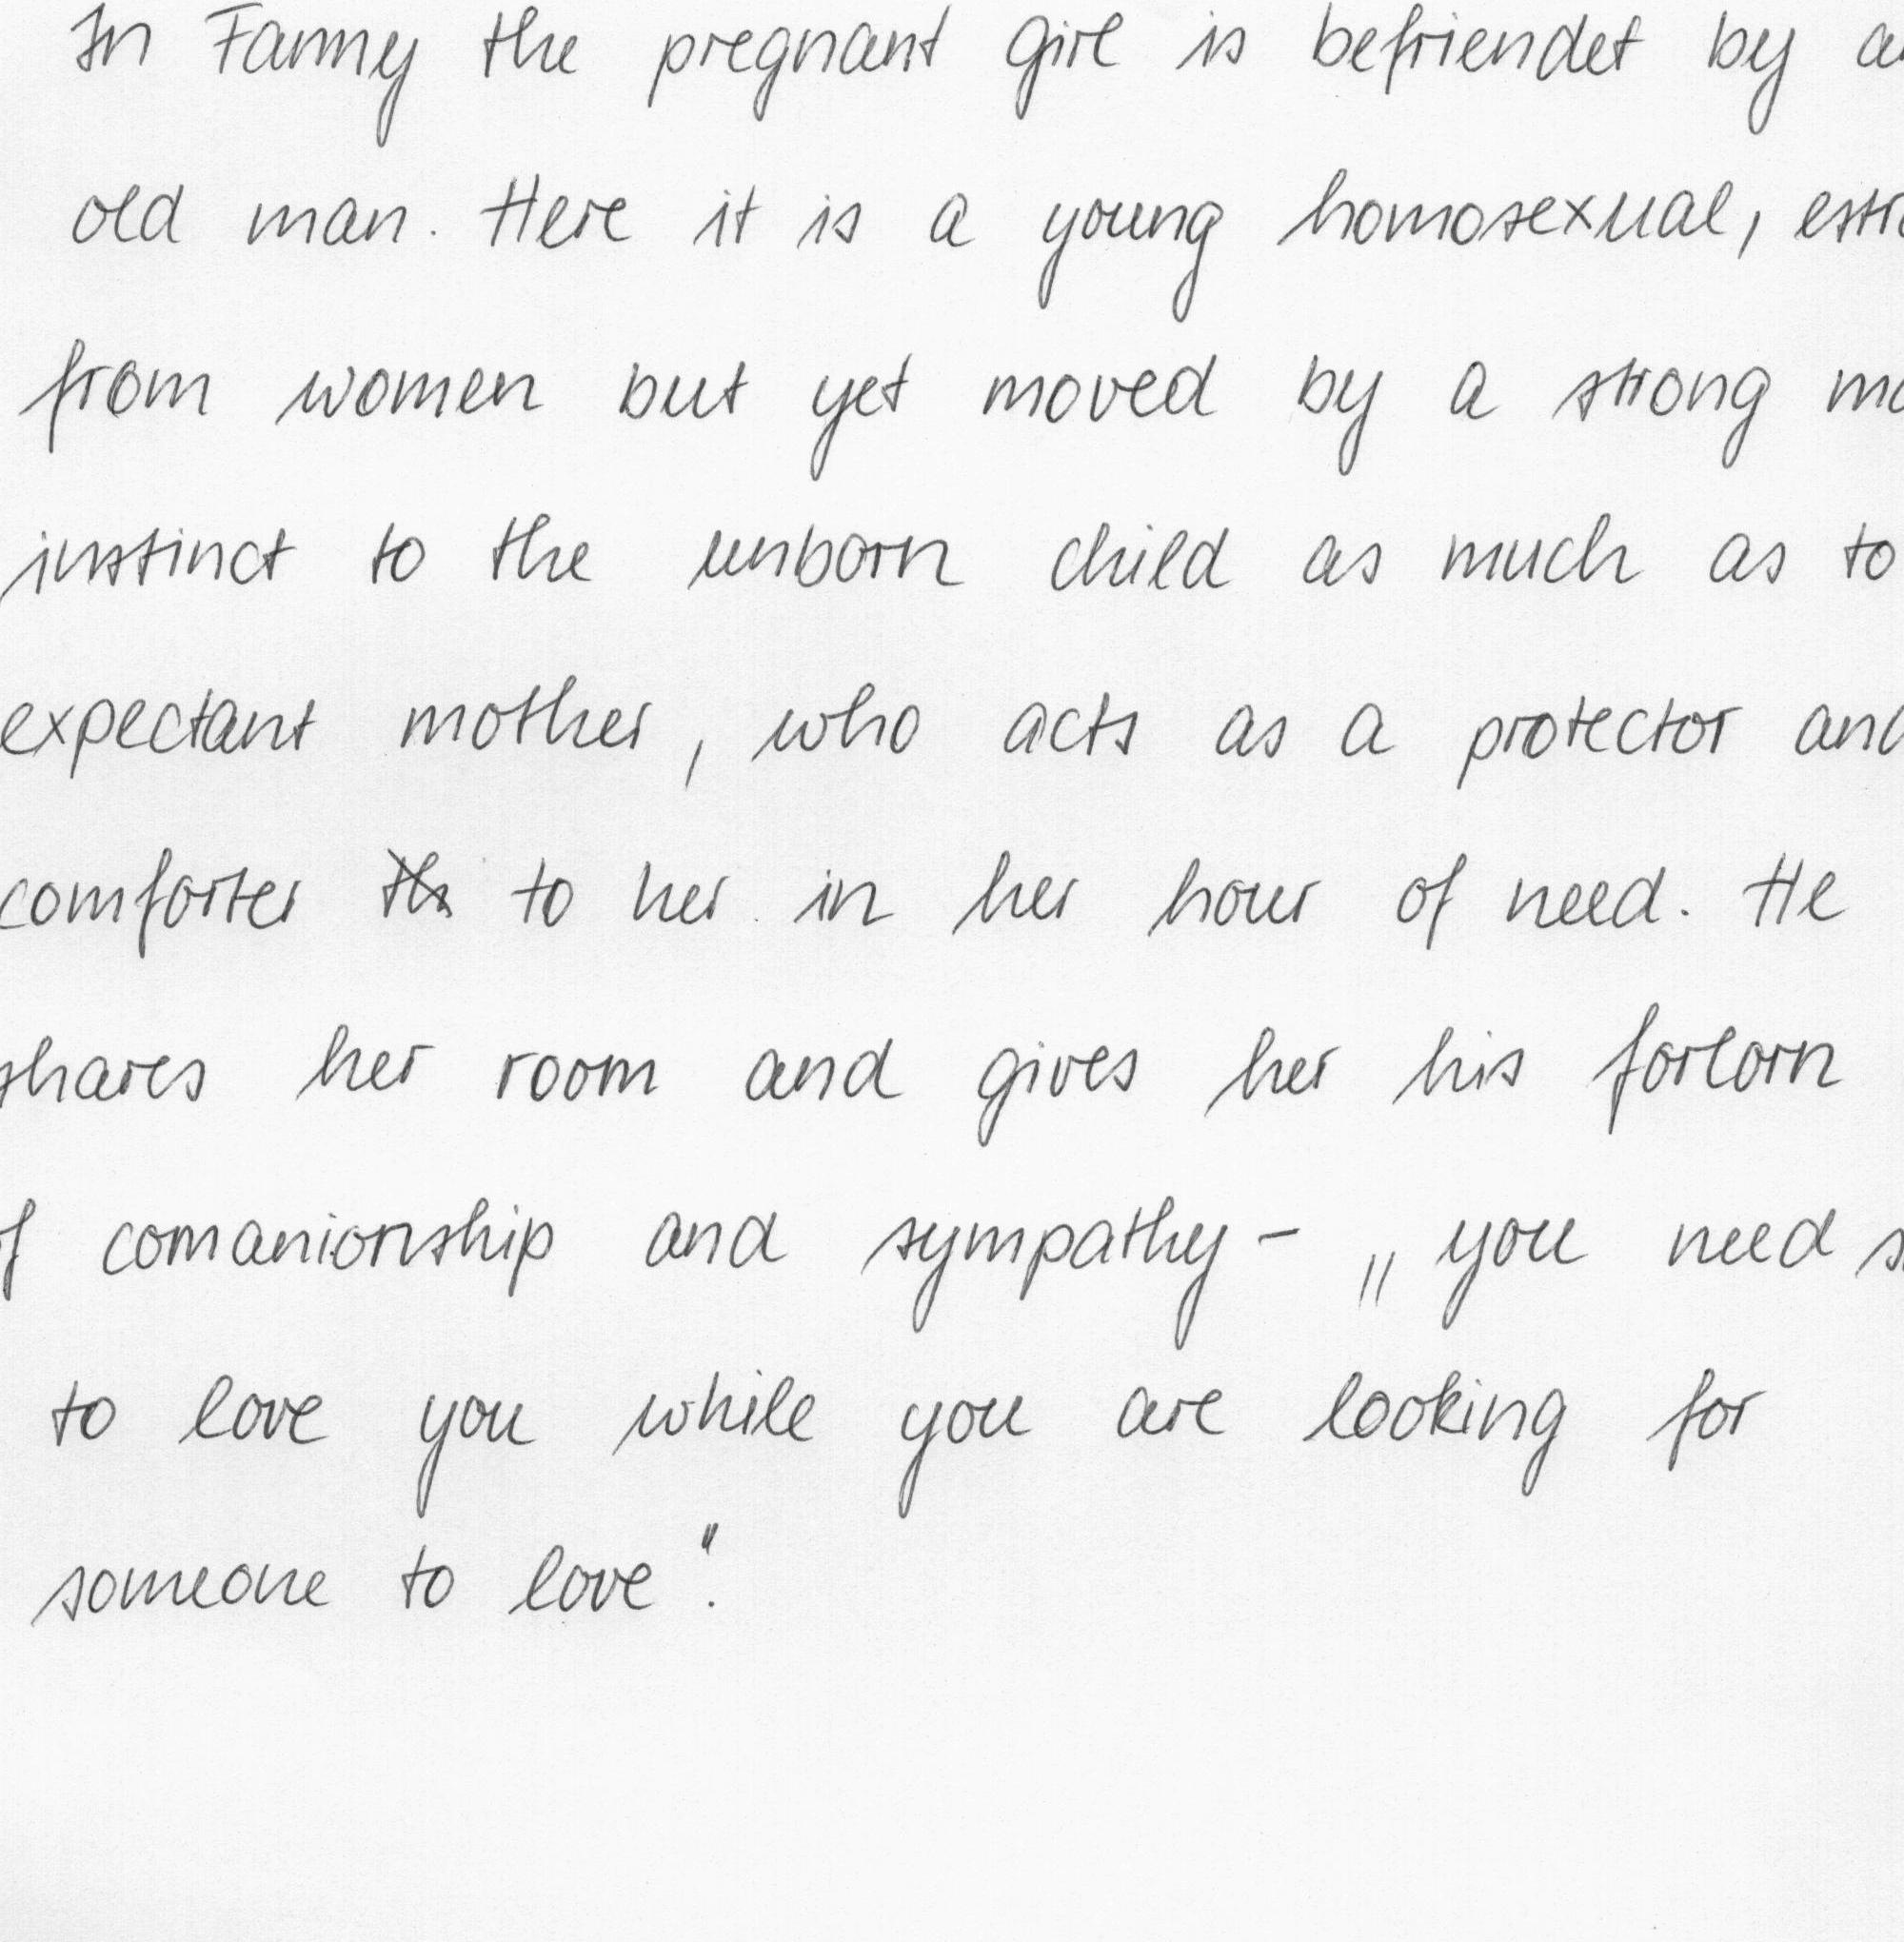 In Fanny the pregnant girl is befriendet by
old man. Here it is a young homosexual,
from women but yet moved by a strong
instinct to the unborn child as much as to
expectant mother, who acts as a protector and
comforter to her in her hour of need. He
shares her room and gives her his forlorn
of comanionship and sympathy - „you need
to love you while you are looking for
someone to love".